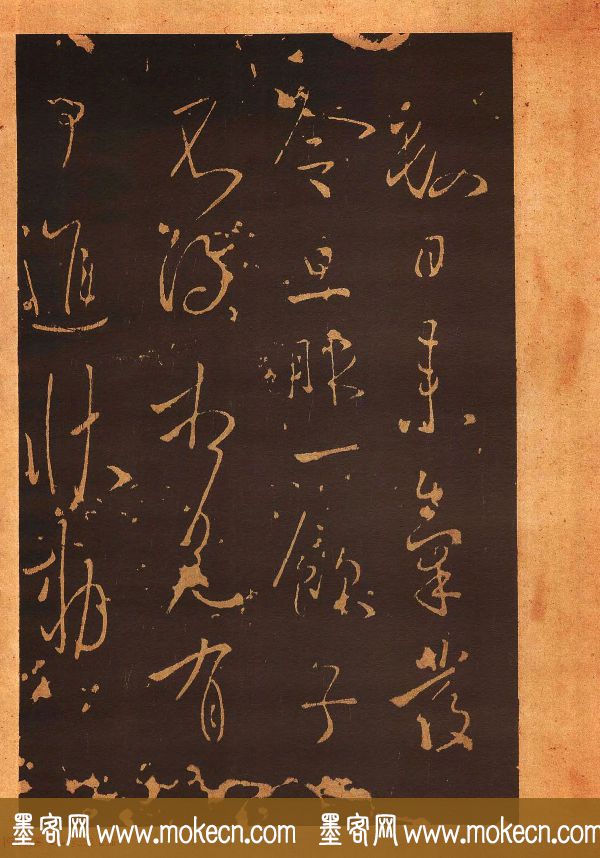 日来氣發
今旦服一飲子
不得相見有
進状
墨客网 www.mokecn.com 墨客网 www.mokecn.com